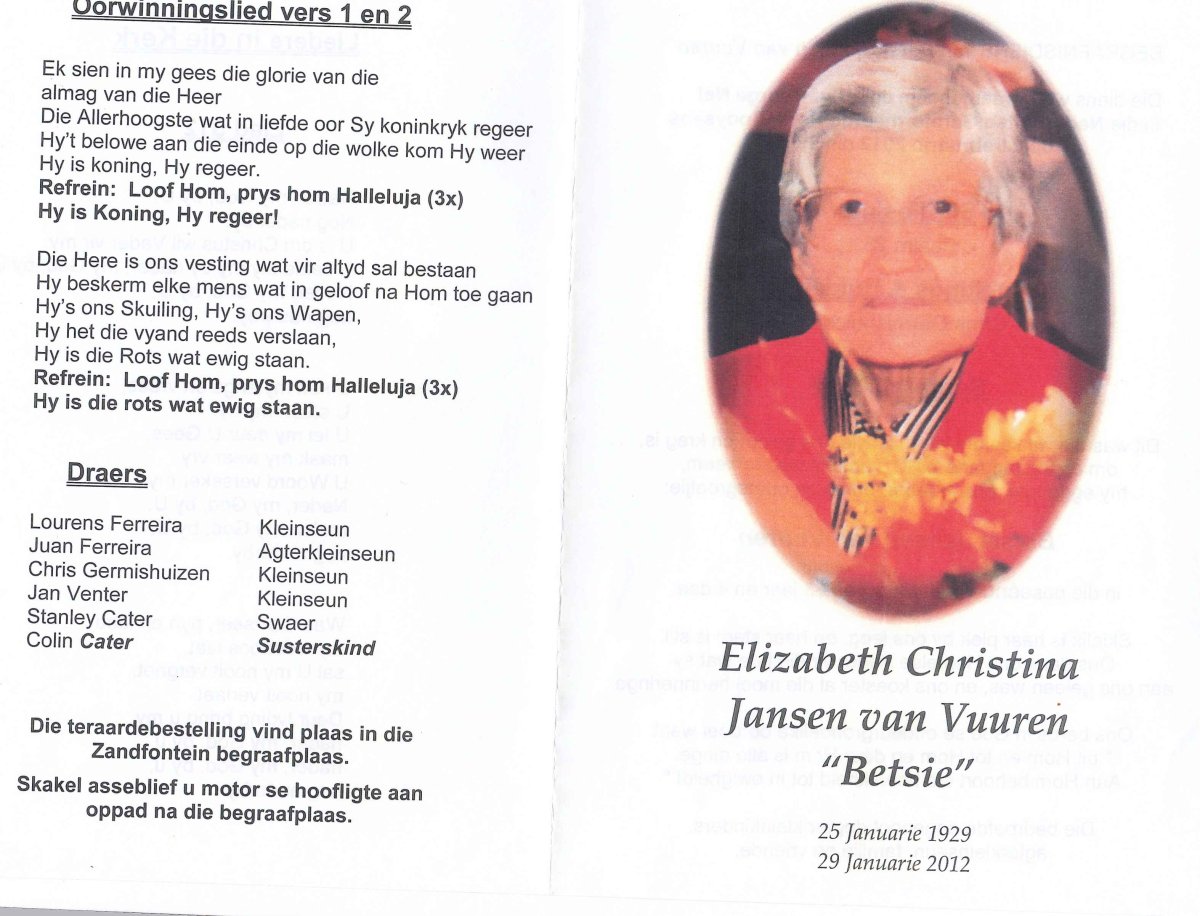 Oorwinningslied vers 1 en 2
Ek sien in my gees die glorie van die
almag van die Heer
Die Allerhoogste wat in liefde oor Sy koninkryk regeer
Hy't belowe aan die einde op die wolke kom Hy weer
Hy is koning, Hy regeer.
Refrein: Loof Hom, prys hom Halleluja (3x)
Hy is Koning, Hy regeer!
Die Here is ons vesting wat vir altyd sal bestaan
Hy beskerm elke mens wat in geloof na Hom toe gaan
Hy's ons Skuiling, Hy's ons Wapen,
Hy het die vyand reeds verslaan,
Hy is die Rots wat ewig staan.
Refrein: Loof Hom, prys hom Halleluja (3x)
Hy is die rots wat ewig staan.
Draers
Lourens Ferreira Kleinseun
Juan Ferreira Agterkleinseun
Chris Germishuizen Kleinseun
Jan Venter Kleinseun
Stanley Cater Swaer
Colin Cater Susterskind
Die teraardebestelling vind plaas in die
Zandfontein begraafplaas.
Skakel asseblief u motor se hoofligte aan
oppad na die begraafplaas.
Elizabeth Christina
Jansen van Vuuren
“Betsie”
25 Januarie 1929
29 Januarie 2012